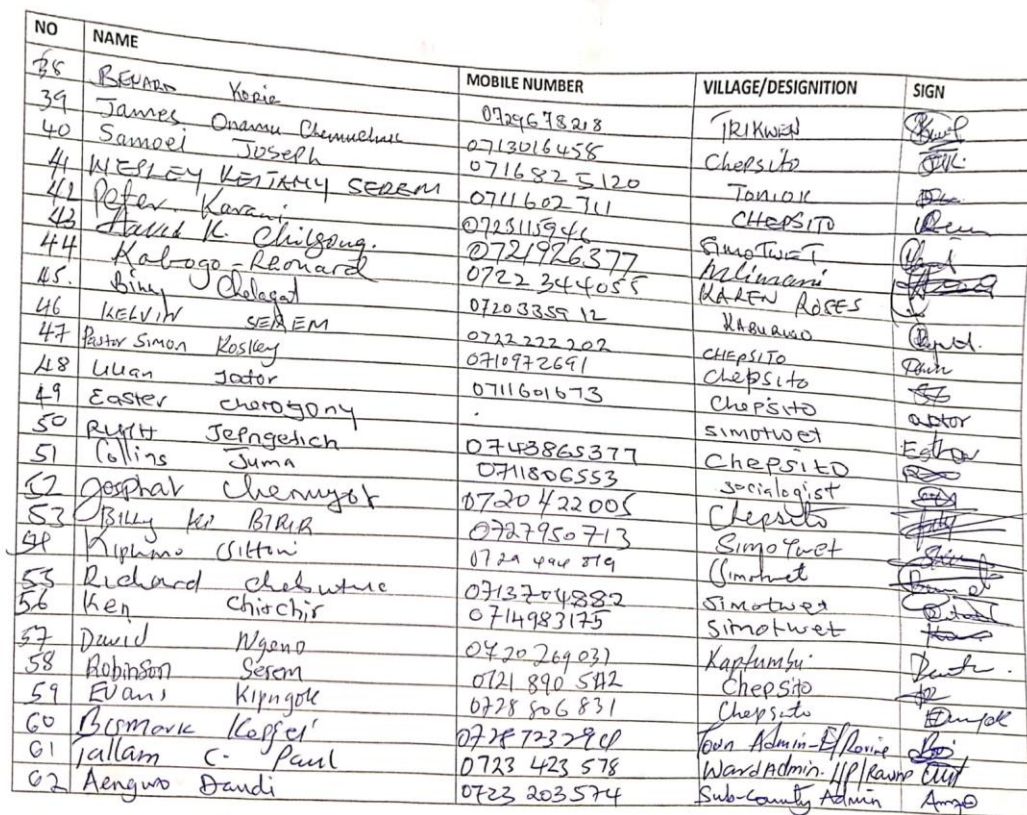 NO NAME MOBILE NUMBER VILLAGE/DESIGNITION SIGN
38 BENARD Kopie 0729678218 TRIKWEN
39 James Onamu 0713016458 Chepsito
40 Samoei Joseph 0716825120 TONIOK
41 WESLEY KEITANY SEREM 0711602711 CHEPSITO
42 Peter Karani 0723115946 SIMOTWET
43 David K. Chilgong. 0721926377 Mlimani
44 Kabogo - Leonard 0722 344055 KAREN ROSES
45. Chelagat 0720335912
46 KELVIN SEREM 0722222202 CHEPSITO
47 Pastor Simon Koskey 0710972691 Chepsito
48 Lilian Jator 0711601673 Chepsito
49 Easter cherogony . simotwet
50 RUTH Jepngetich 0743865377 Chepsito
51 Collins Juma 0711806553 socialogist
52 Josphat 0720422005 Chepsito
53 Billy Ki BIRIR 0727950713 Simotwet
54 Simotwet
55 Richard 0713704882 Simotwet
56 Ken Chirchir 0714983175 Simotwet
57 David Ngeno 0720269031 Kaptumbu
58 Robinson Serem 0721 890 542 Chepsito
59 Evans Kipngok 0728 806 831 Chepsito
60 Bismark Town Admin-E/Ravine
61 Tallam C. Paul 0723 423 578 Ward Admin.
62 Aengwo Daudi 0723 203574 Sub-County Admin